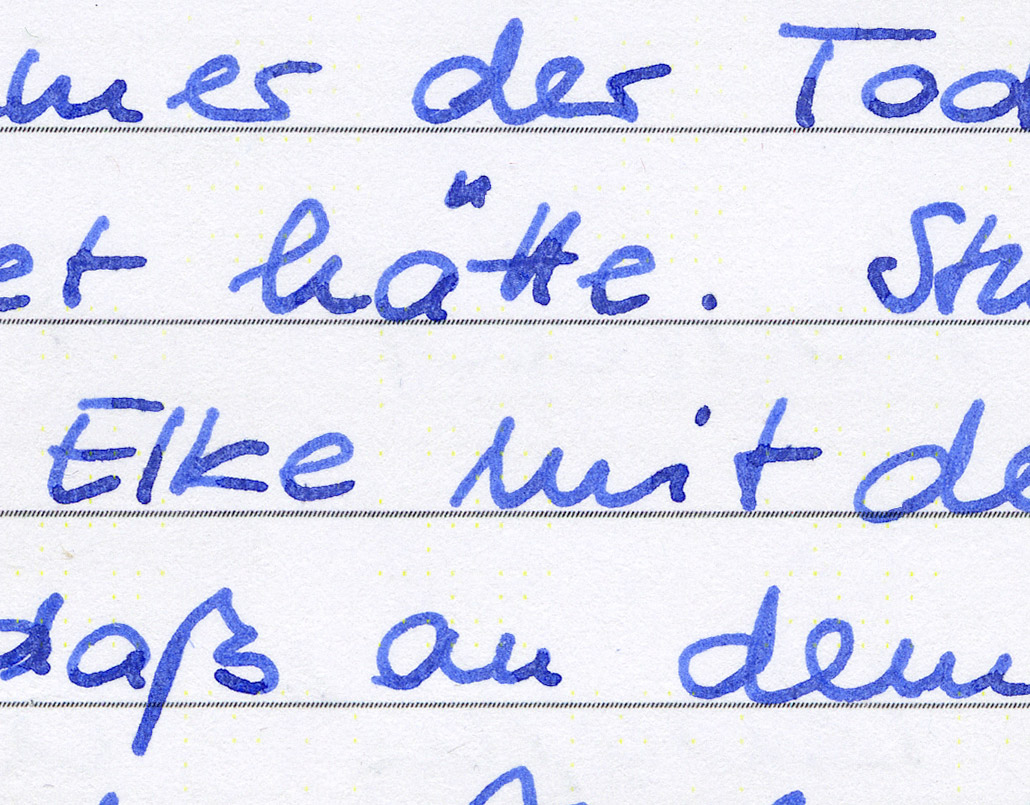 mer der Tod
et hätte. Stu
Elke mit de
daß an dem